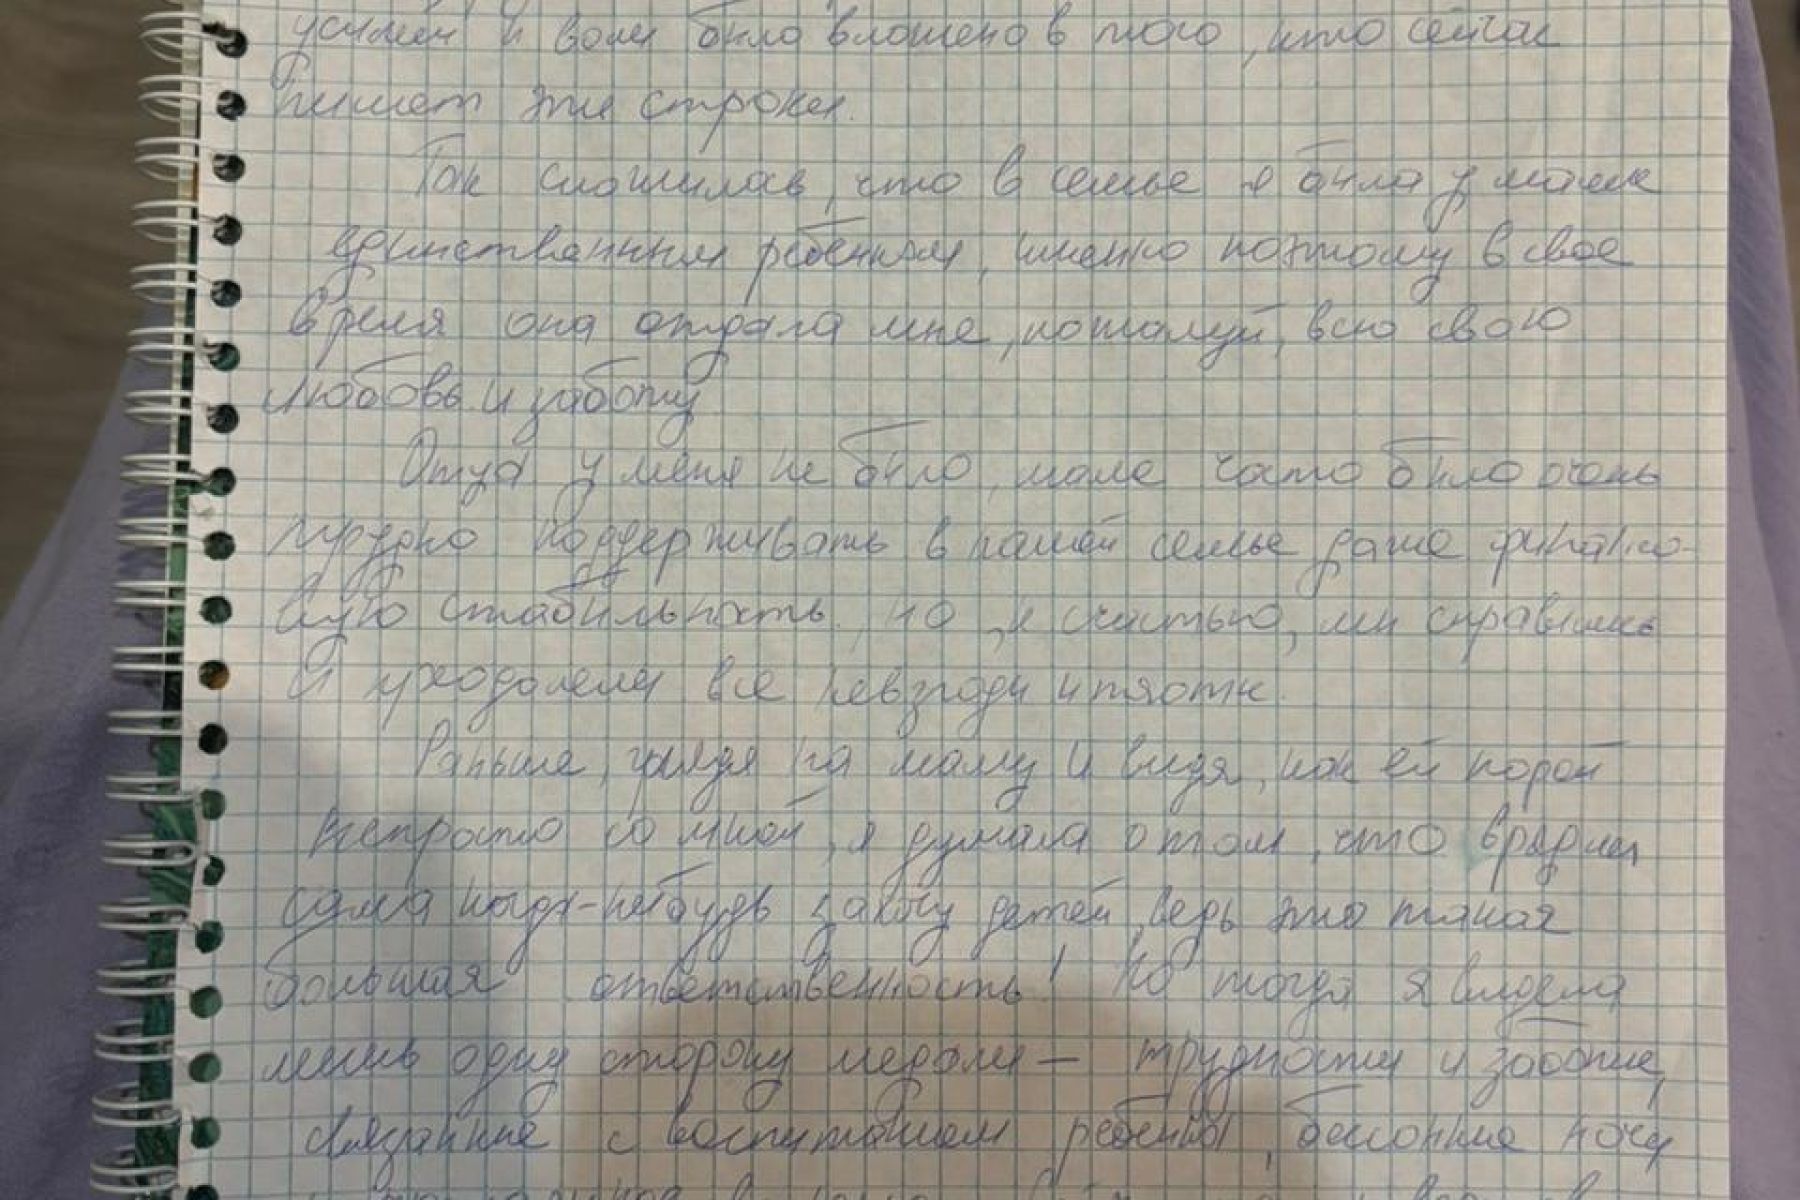 усилий и воли было вложено в того, кто сейчас
пишет эти строки.
Так сложилось, что в семье я была у мамы
единственным ребенком, именно поэтому в свое
время она отдала мне, пожалуй, всю свою
любовь и заботу
Отца у меня не было, маме часто было очень
трудно поддерживать в нашей семье даже финансо-
вую стабильность, но, к счастью, мы справились
и преодолели все невзгоды и тяготы.
Раньше, глядя на маму и видя, как ей порой
непросто со мной, я думала о том, что врядли
сама когда-нибудь захочу детей, ведь это такая
большая ответственность! Но тогда я видела
лишь одну сторону медали — трудности и заботы,
связанные с воспитанием ребенка, бессонные ночи